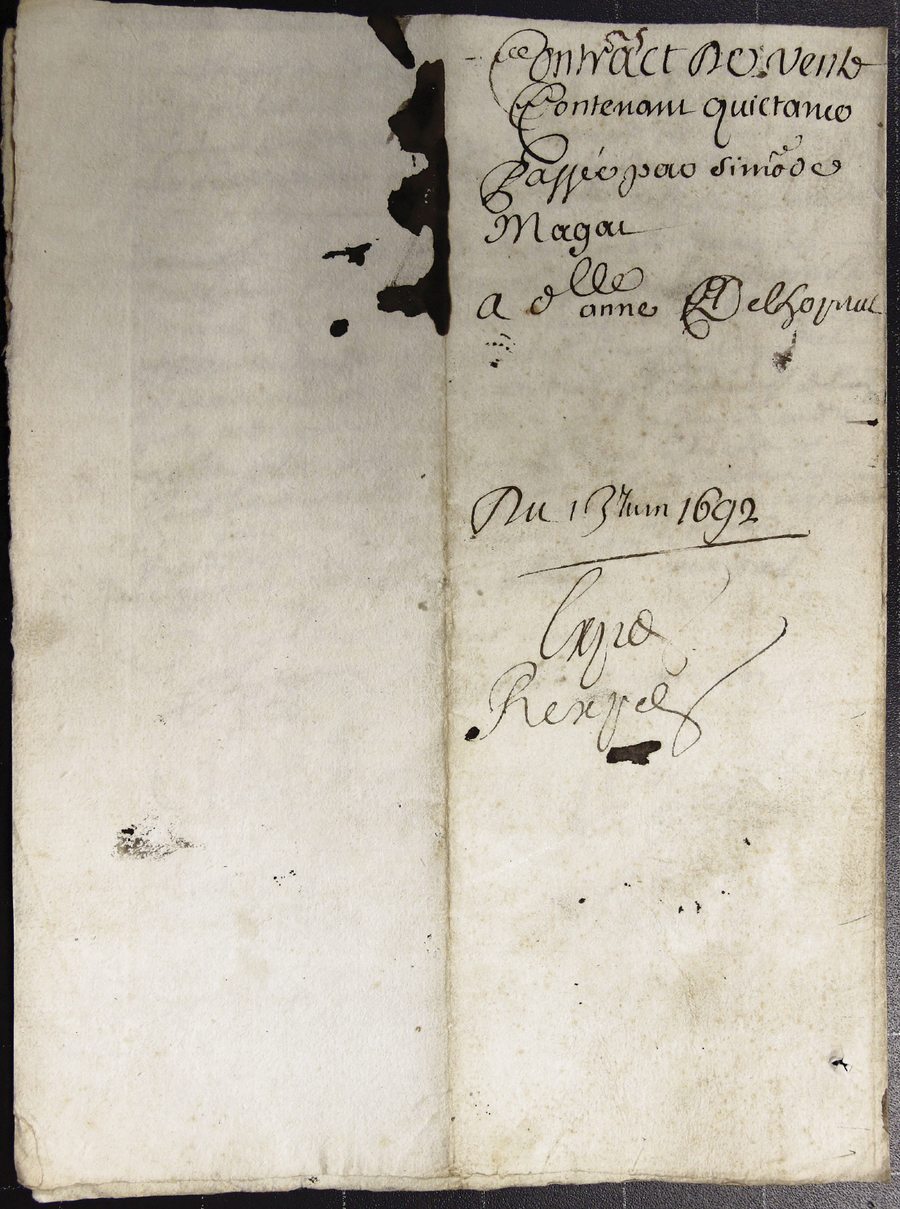 Contract De vente
Contenant quictance
Passée par Simōde
Magat
A dlle anne Delhopital
Du 13 Juin 1692
Expé